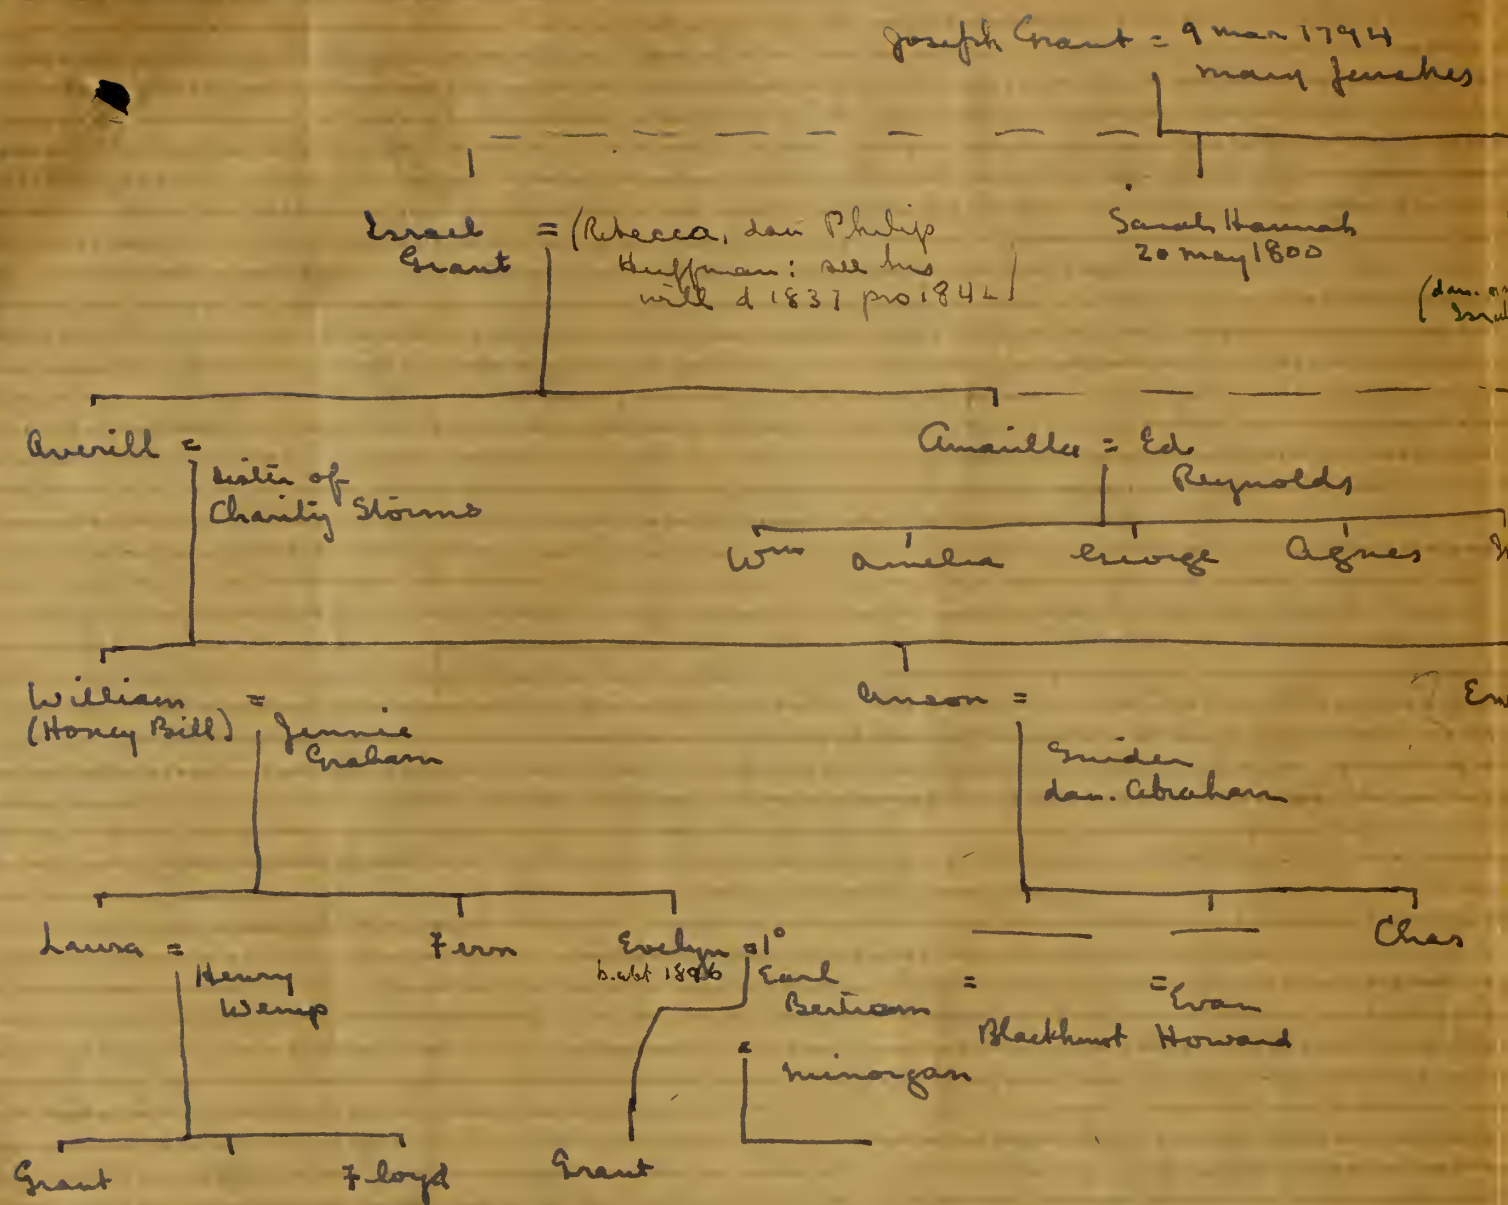 Joseph Grant = 9 Mar 1794
Mary Jenches
Israel
Grant
= (Rebecca, dau Philip
Huffman: see his
will d 1837 pro 1842)
Sarah Hannah
20 May 1800
(dau.
Averill =
sister of
Charity Storms
Amarilla = Ed.
Reynolds
Wm Amelia George Agnes
William =
(Honey Bill)
Jennie
Graham
Anson =
Snider
dau. Abraham
?
Laura =
Henry
Wemp
Fern
Evelyn = 1°
b. abt 1896
Earl
Bertram
=
Minorgan
=
Blackhurst
= Evan
Howard
Chas
Grant
Floyd
Grant